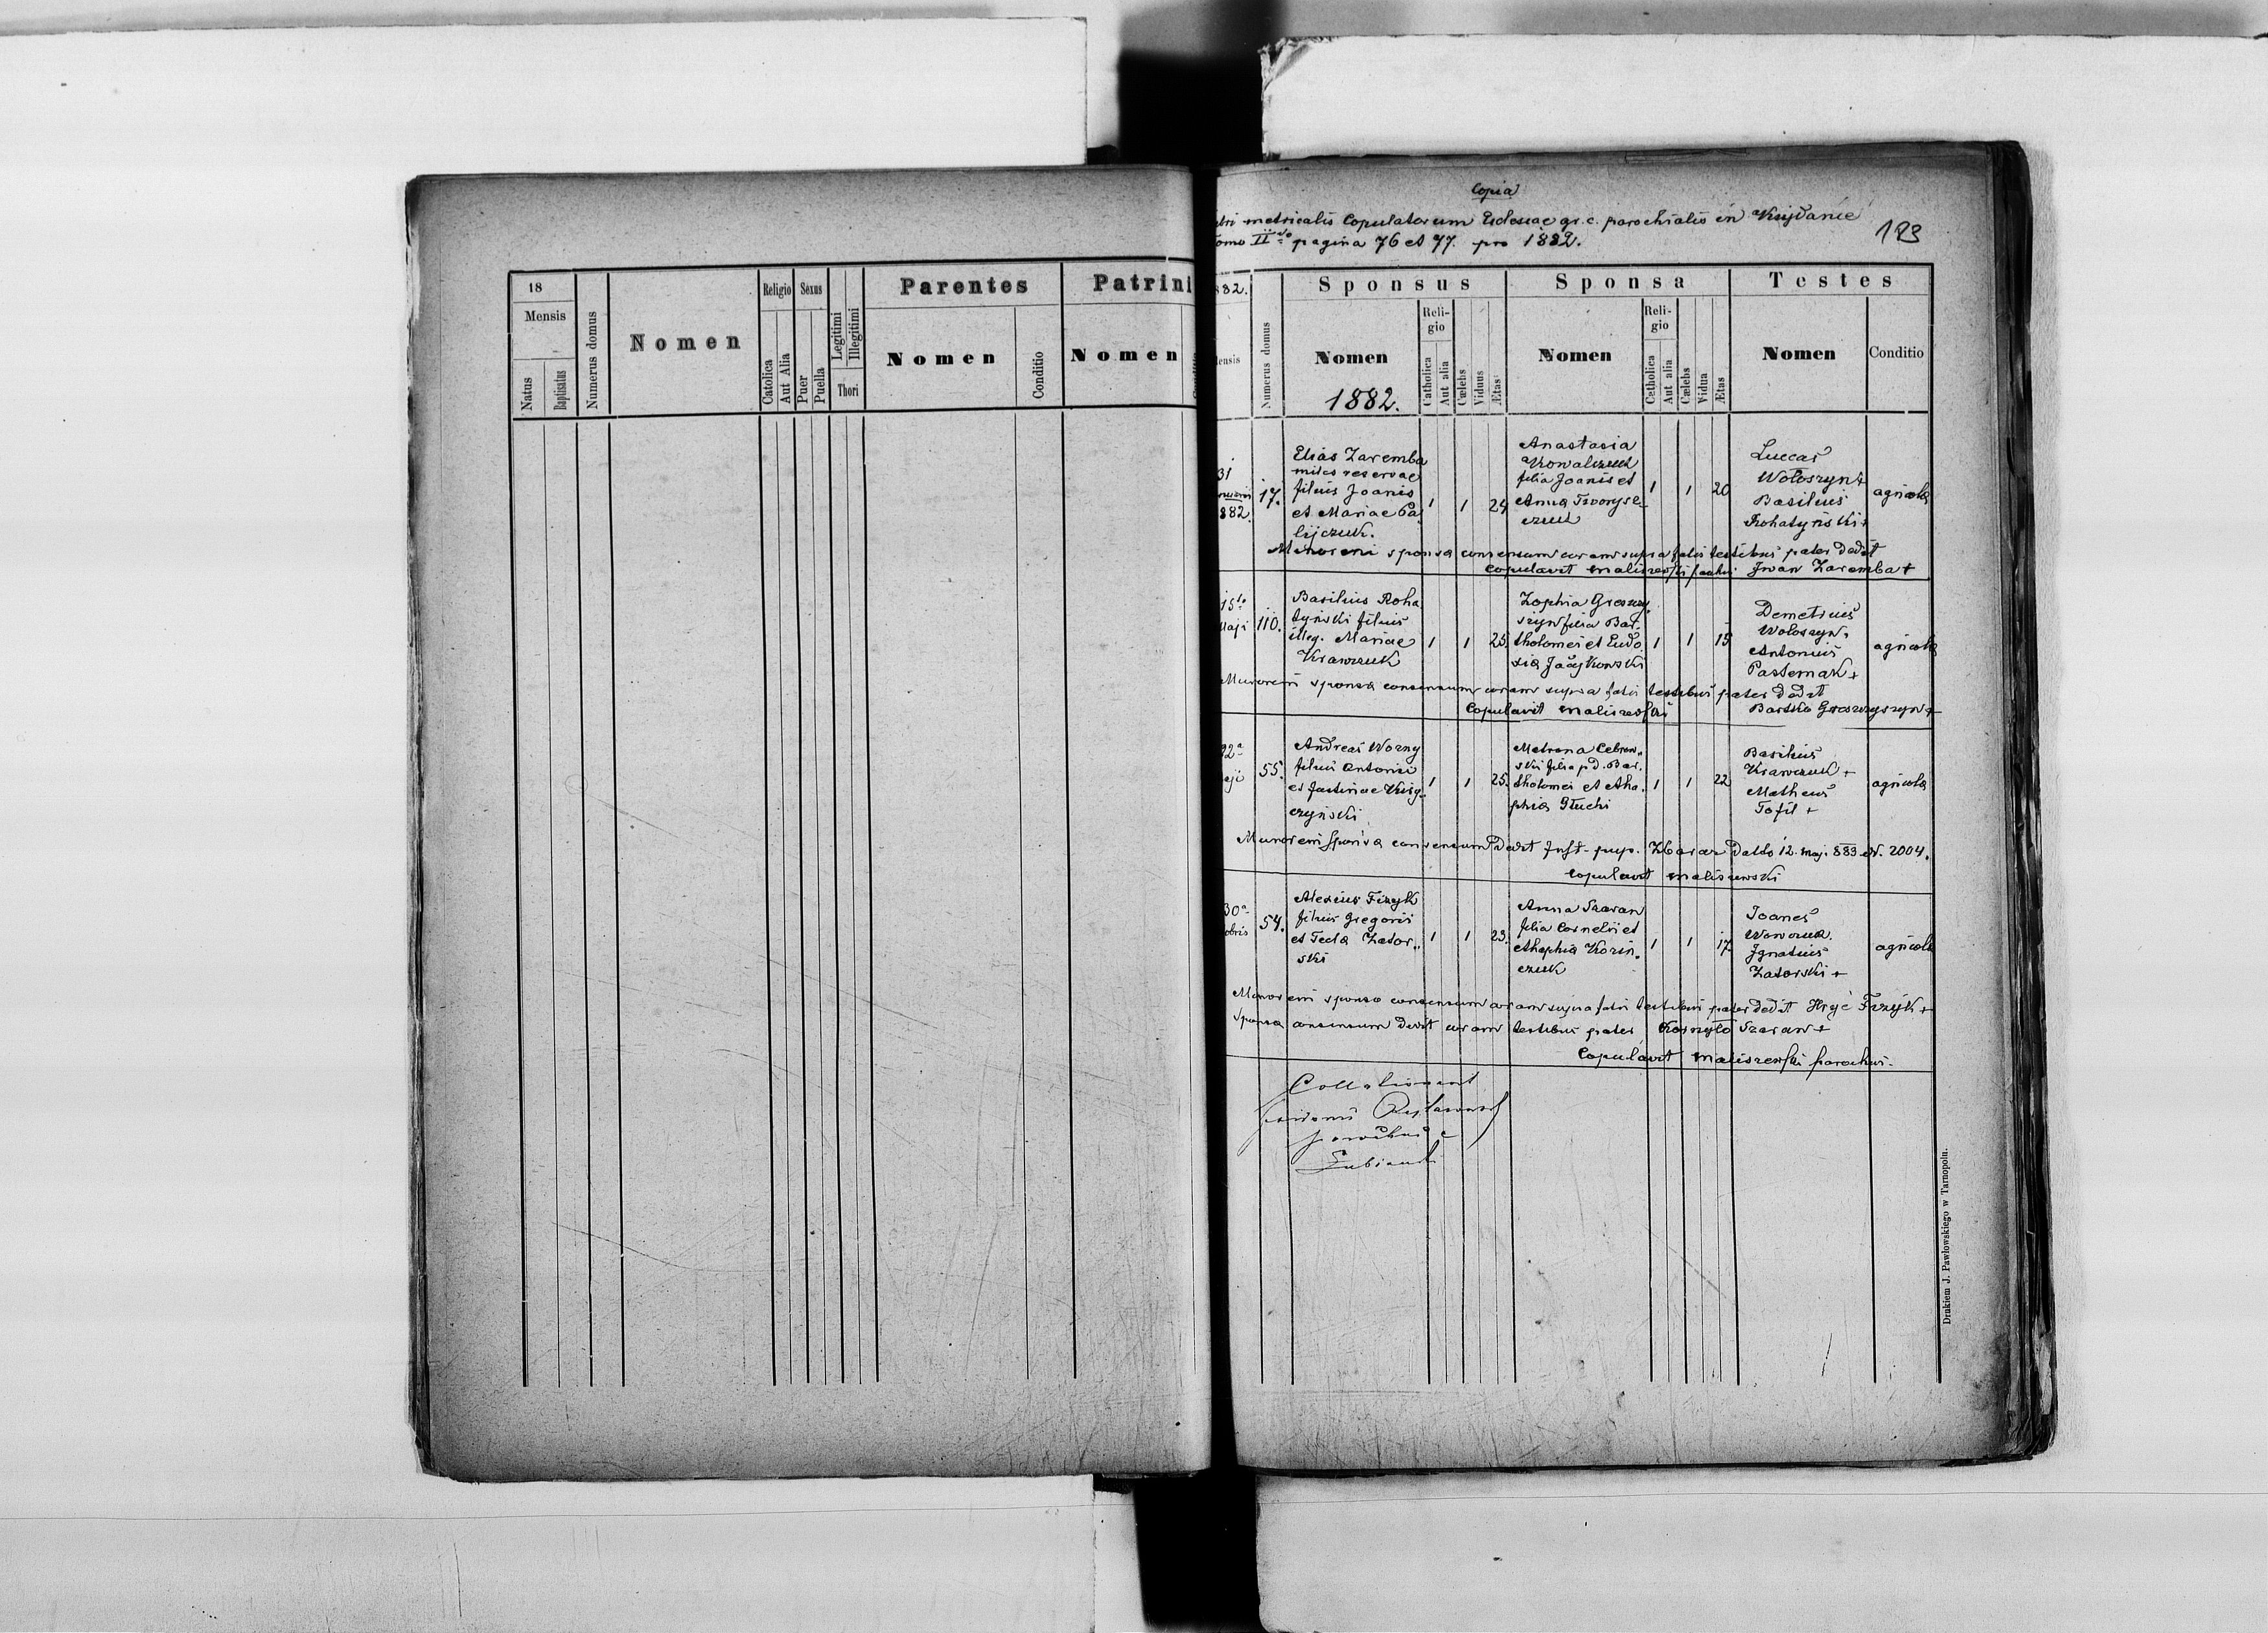 18
Mensis
Natus
Baptisatus
Numerus domus
Nomen
Religio
Catolica
Aut Alia
Sexus
Puer
Puella
Legitimi
Illegitimi
Thori
Parentes
Nomen
Conditio
Patrini
Nomen
Copia
metricalis Copulatorum Eclesiae gr. c. parochialis in
Tomo II pagina 76 et 77. pro 1882.
193
882.
Mensis
Numerus domus
Sponsus
Nomen
1882.
Religio
Catholica
Aut alia
Cœlebs
Viduus
Ætas
Sponsa
Nomen
Religio
Cetholica
Aut alia
Cælebs
Vidua
Ætas
Testes
Nomen
Conditio
31
882.
17.
Elias Zaremba
miles reservae
filius Joanis
et Mariae Pa
lijczuk.
1 1 24
Anastasia
Kowalczuk
filia Joanis et
Anna
czuk
1 1 20
Luccas
Wołoszyn +
Basilius
Rohatyński +
agricola
Minoreni sponsa consensum coram supra fatis testibus pater dedit
Copulavit Maliszewski Iwan Zaremba +
15to
Maji
110.
Basilius Roha
tyński filius
illeg. Mariae
Krawczuk
1 1 25.
Zophia Greszczy
szyn filia Bar.
tholomei et Eudo
xia
1 1 19
Demetrius
Wołoszyn,
Antonius
Pasternak +
agricola
Minoreni sponsa consensum coram supra fatis testibus pater dedit
Copulavit Maliszewski Bartko Greszczyszyn +
22a
55.
Andreas Wozny
filius Antonii
et Justinae Krzy-
czyński
1 1 25.
Matrona Cebrow„
ski filia p. d. Bar.
tholomei et Aha.
phia Głuchi
1 1 22
Basilius
Krawczuk +
Matheus
Tofil +
agricola
Minoreni Sponsa consensum dedit Just. pup. Zbaraz Datto 12. Maj. 883 N. 2004.
Copulavit Maliszewski
30a
54.
Alexius Fizyk
filius Gregorii
et Tecla Zator„
ski
1 1 23.
Anna Szaran
filia Cornelii et
Ahaphia Korin„
czuk
1 1 17
Joanes
Wowczuk.
Ignatius
Zatorski +
agricola
Minoreni sponso consensum coram supra fatis testibus pater dedit Hryć Fizyk +
Sponsa consensum dedit coram testibus pater Kornyło Szaran +
Copulavit Maliszewski parochus.
parochus
Drukiem J. Pawłowskiego w Tarnopolu.